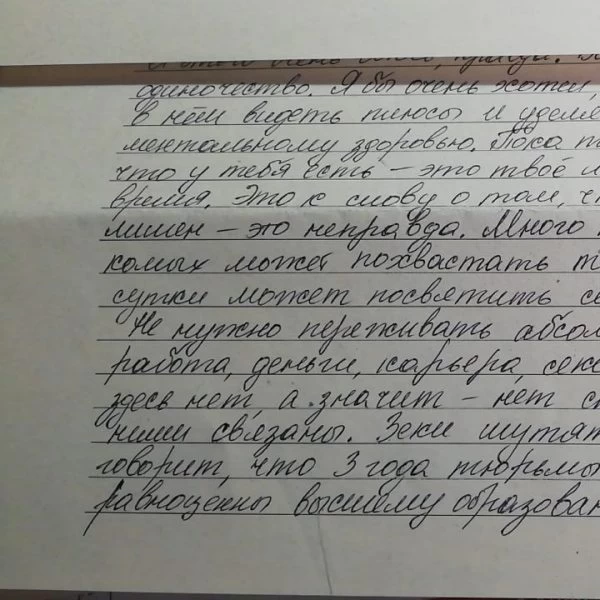 одиночество. Я бы очень хотел,
в нём видеть плюсы и уделя
ментальному здоровью. Пока т
что у тебя есть – это твоё
время. Это к слову о том, ч
лишен – это неправда. Много
комых может похвастать т
сутки может посвятить се
Не нужно переживать абсол
работа, деньги, карьера, секс
здесь нет, а значит – нет с
ними связаны. Зеки шутят
говорит, что 3 года тюрьмы
равноценны высшему образован